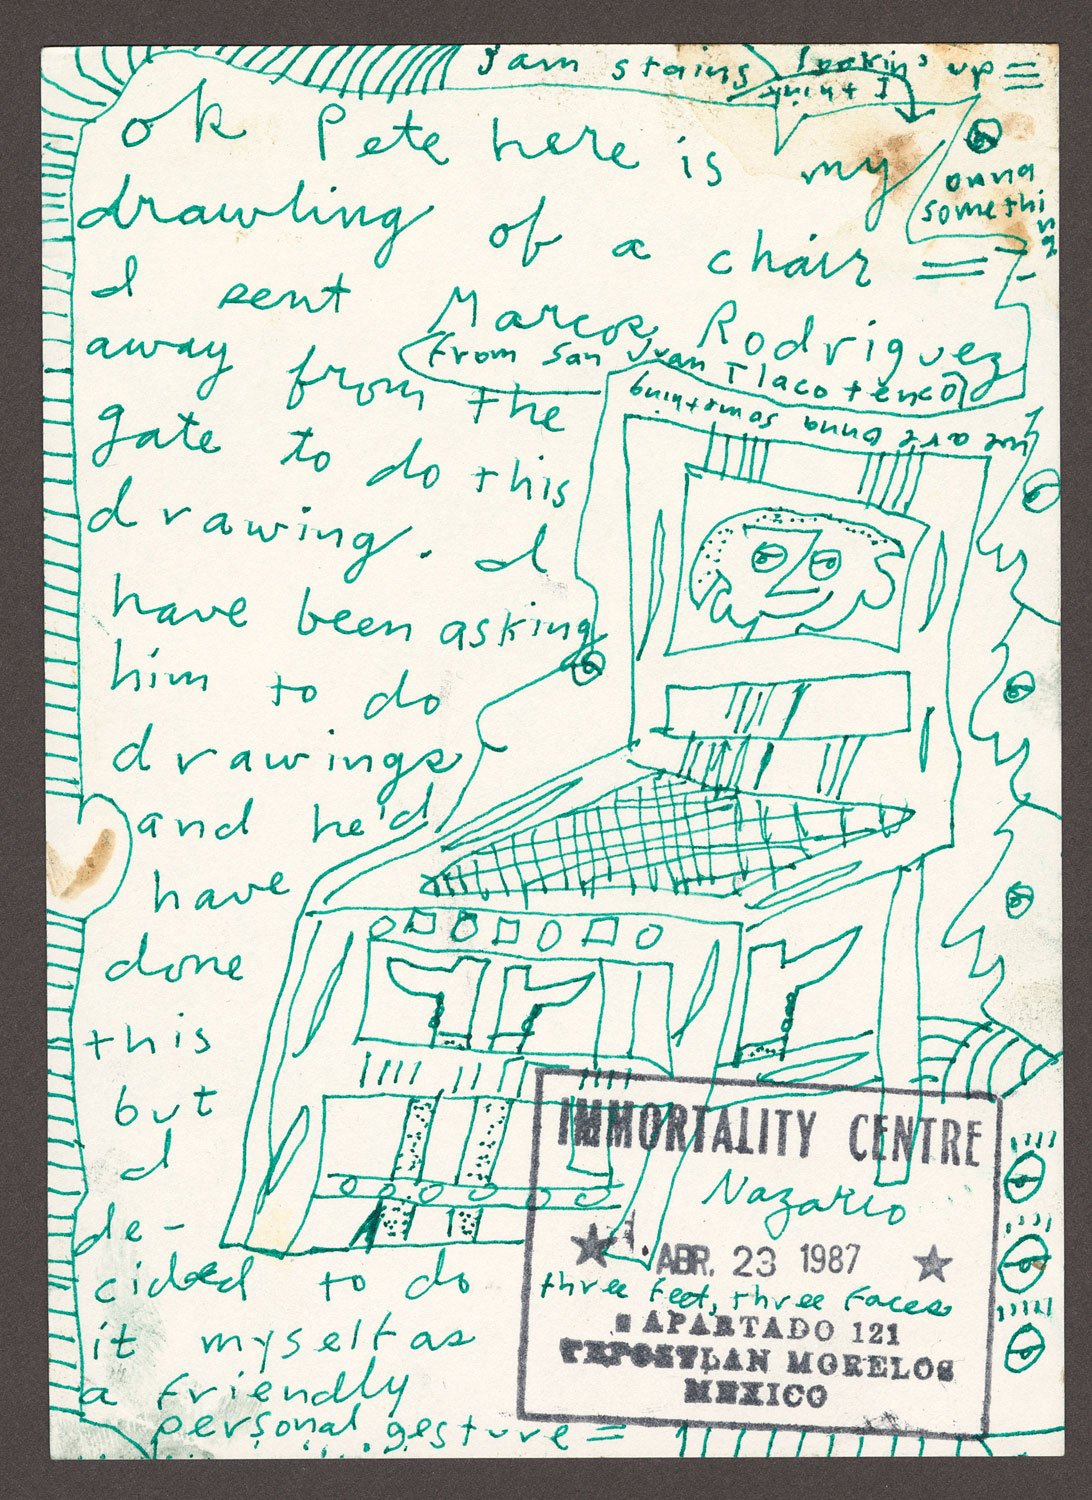 Jam stains
lookin' up =
I think
ok Pete here is my
drawling of a chair =
onna
somethi
ng
I sent Marcos Rodriguez
(from San Juan Tlacotenco)
away from the
we are onna something
gate to do this
drawing. I
have been asking
him to do
drawings
and he'd
have
done
this
but
I
de-
cided to do
it myself as
a friendly
personal gesture =
IMMORTALITY CENTRE
Nazario
ABR. 23 1987
three feet, three faces
APARTADO 121
TEPOZTLAN MORELOS
MEXICO